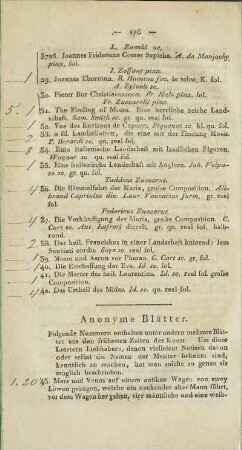 — 196 —
L. Zucchi sc.
3728. Joannes Fridericus Comes Sapieha. A. de Manjochy
pinx. fol.
J. Zoffany pinx.
29. Joannes Thornton. R. Houston fec. in schw. K. fol.
A. Zylvelt sc.
30. Pieter Bor Christiaenszoon. Fr. Hals pinx. fol.
Fr. Zuccarelli pinx.
31. The Finding of Moses. Eine herrliche reiche Land-
schaft. Sam. Smith sc. gr. qu. fol.
32. Vue des Environs de Capoue. Piquenot sc. kl. qu. fol.
33. 2 fil. Landschaften, die eine mit der Findung Mosis.
P. Berardi sc. qu. fol.
34. Eine Italienische Landschaft mit ländlichen Figuren.
Wagner sc. qu. fol.
35. Eine Italienische Landschaft mit Anglern. Joh. Volpa-
to sc. gr. qu. fol.
Taddeus Zuccarus.
36. Die Himmelfahrt der Maria, große Composition. Ali-
brand Capriolus die Laur. Vaccarius form. gr. real
fol.
Federicus Zuccarus.
37. Die Verkündigung der Maria, große Composition. C.
Cort sc. Ant. Lafreri direxit. gr. qu. real fol. halb
rund.
38. Der heil. Franciskus in einer Landschaft knieend: Jem
Senziati cordis. Esye sc. real fol.
39. Moses und Aaron vor Pharao. C. Cort sc. gr. fol.
40. Die Erschaffung der Eva. Id. sc. fol.
41. Die Marter des heil. Laurentius. Id. sc. real fol. große
Composition.
42. Das Urtheil des Midas. Id. sc. qu. real fol.
Anonyme Blätter.
Folgende Nummern enthalten unter andern mehrere Blät-
ter aus den frühesten Zeiten der Kunst. Um diese
Letztern Liebhabern, denen vielleicht Notizen davon
oder selbst ein Namen der Meister bekannt sind,
kenntlich zu machen, hat man solche so genau als
möglich beschrieben.
1. 20 43. Mars und Venus auf einem antiken Wagen von zwey
Löwen gezogen, welche ein nackender alter Mann führt,
vor dem Wagen her gehen, vier männliche und eine weib-